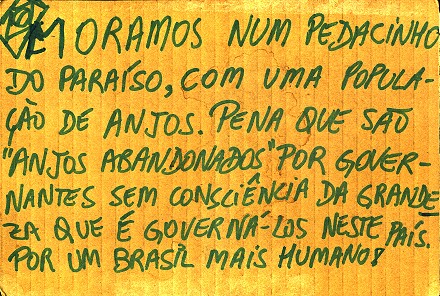 MORAMOS NUM PEDACINHO
DO PARAÍSO, COM UMA POPULA-
ÇÃO DE ANJOS. PENA QUE SÃO
"ANJOS ABANDONADOS" POR GOVER-
NANTES SEM CONSCIÊNCIA DA GRANDE
ZA QUE É GOVERNÁ-LOS NESTE PAÍS.
POR UM BRASIL MAIS HUMANO!